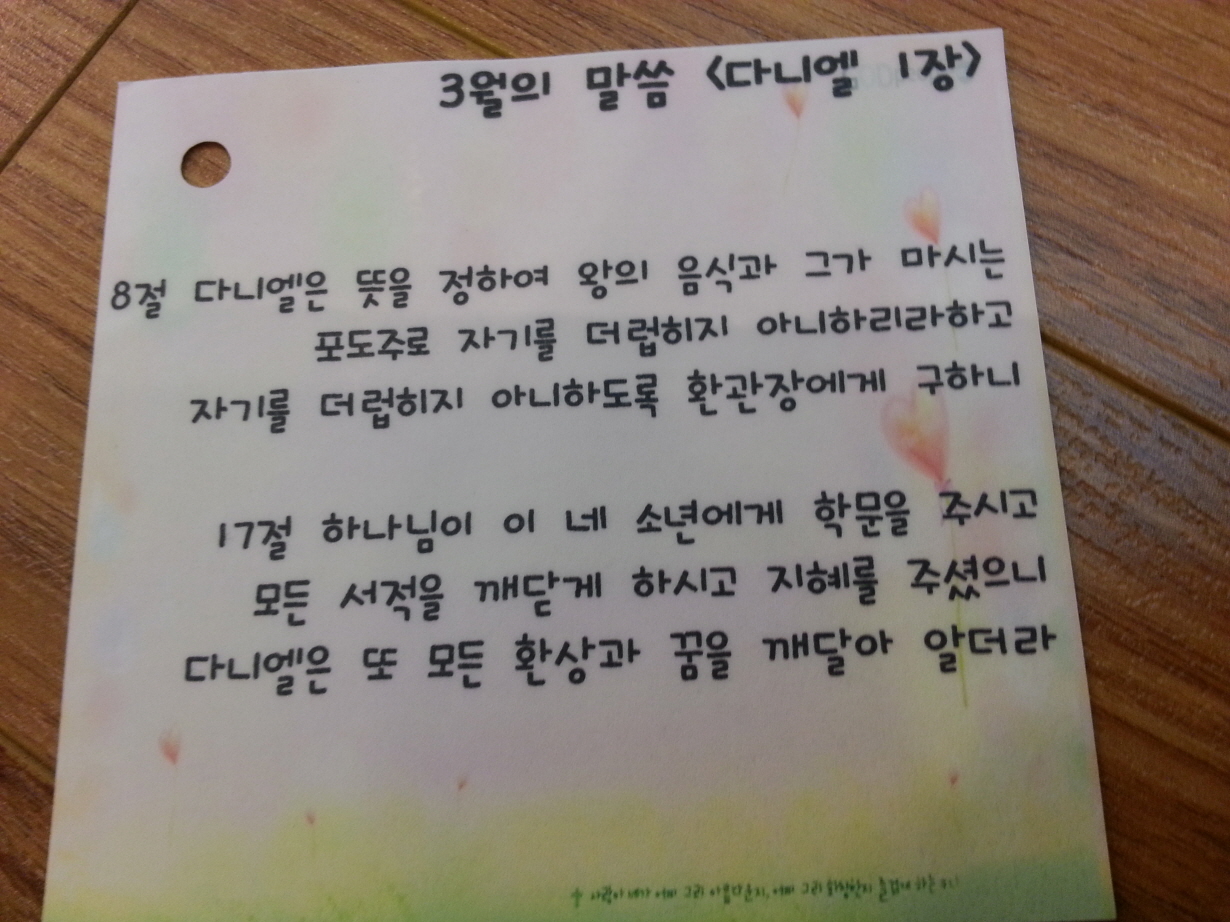 3월의 말씀 <다니엘 1장>
8절 다니엘은 뜻을 정하여 왕의 음식과 그가 마시는
포도주로 자기를 더럽히지 아니하리라하고
자기를 더럽히지 아니하도록 환관장에게 구하니
17절 하나님이 이 네 소년에게 학문을 주시고
모든 서적을 깨닫게 하시고 지혜를 주셨으니
다니엘은 또 모든 환상과 꿈을 깨달아 알더라
사랑아 네가 어찌 그리 아름다운지, 어찌 그리 화창한지 즐겁게 하는구나